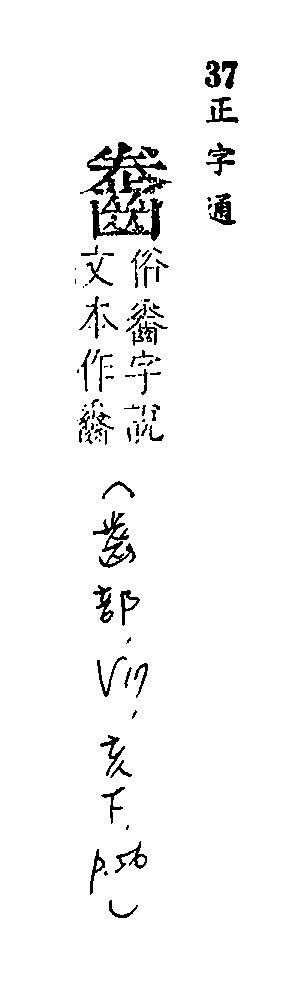 37正字通
齤
俗齤字說
文本作齤
(齒部,V17,亥下,p.56)